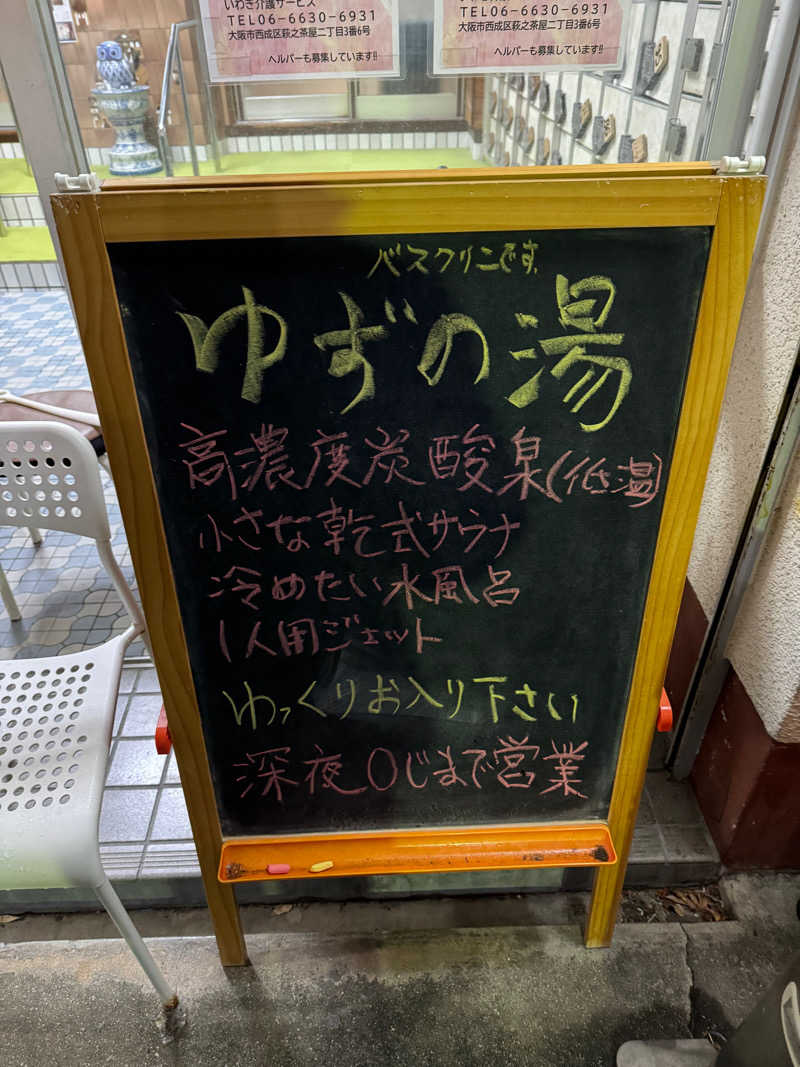 いわき介護サービス
TEL06-6630-6931
大阪市西成区萩之茶屋二丁目3番6号
ヘルパーも募集しています!!
TEL06-6630-6931
大阪市西成区萩之茶屋二丁目3番6号
ヘルパーも募集しています!!
バスクリンです。
ゆずの湯
高濃度炭酸泉(低温)
小さな乾式サウナ
冷めたい水風呂
1人用ジェット
ゆっくりお入り下さい
深夜0じまで営業